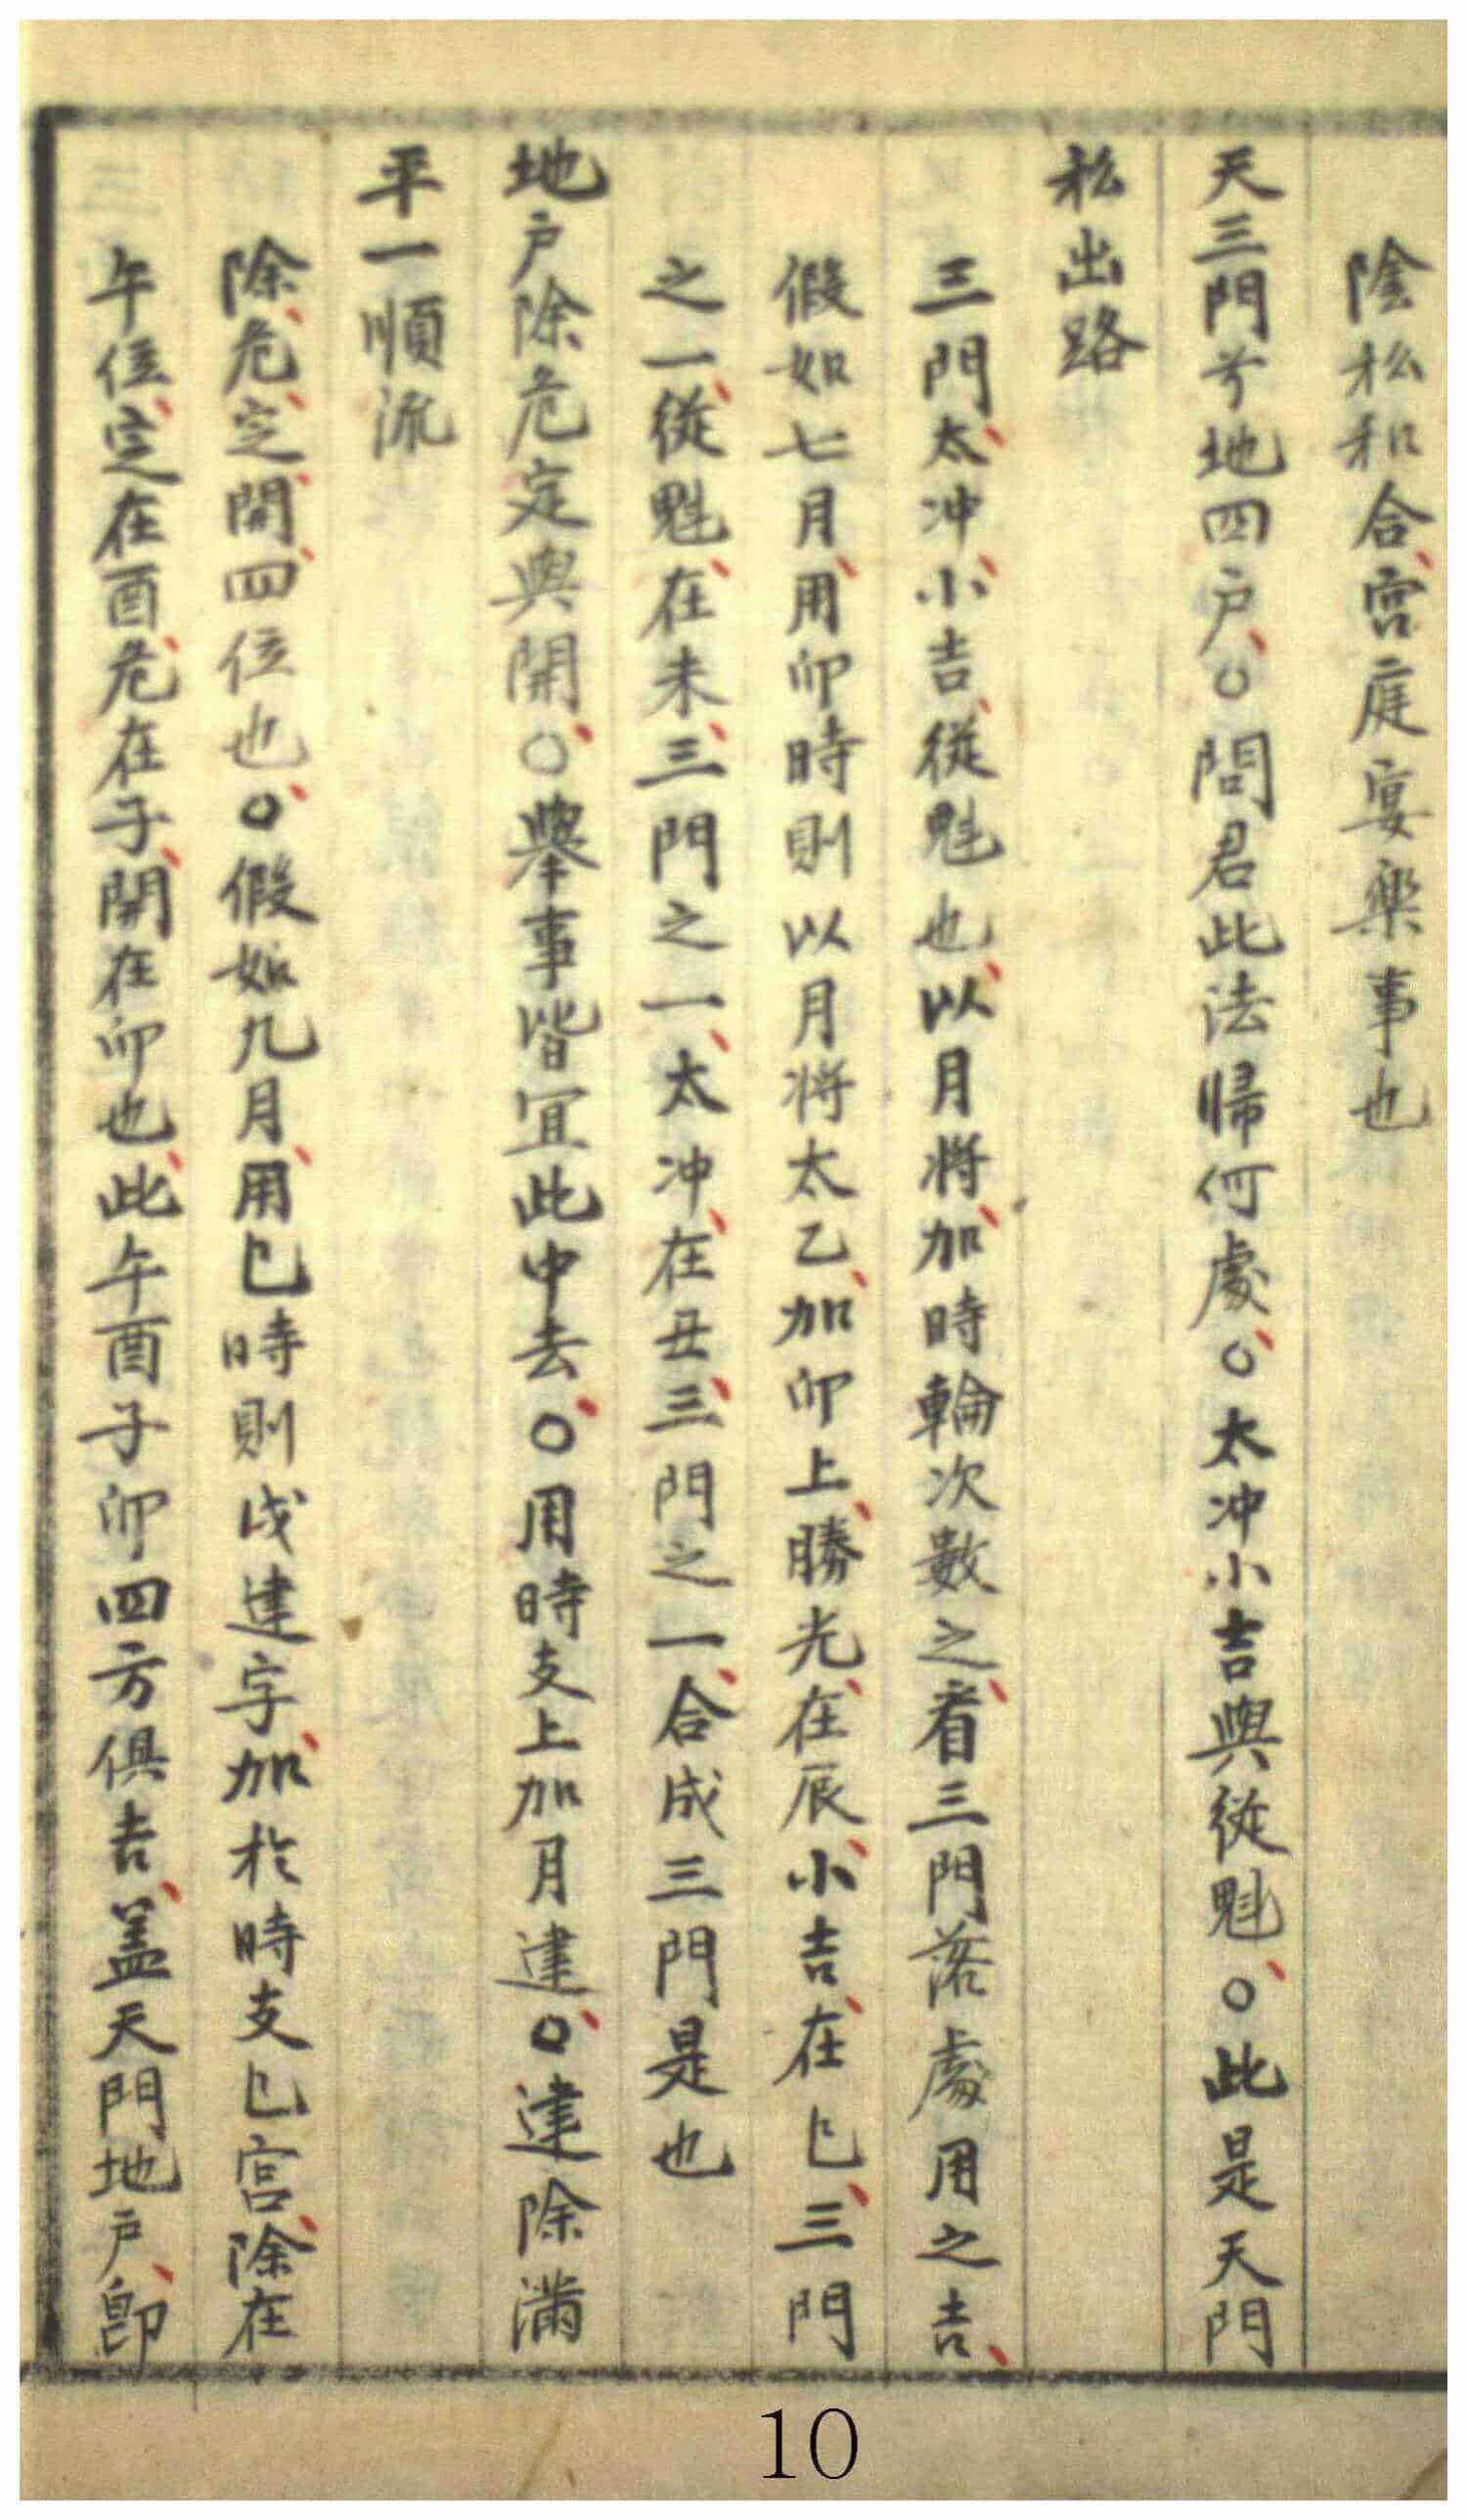 陰私和合宮庭宴樂事也
天三門兮地四户〇問君此法歸何處〇太冲小吉與從魁〇此是天門
私出路
三門太冲小吉從魁也以月將加時輪次數之看三門落處用之吉
假如七月用卯時則以月将太乙加卯上勝光在辰小吉在巳三門
之一從魁在未三門之一太冲在丑三門之一合成三門是也
地户除危定與開〇舉事皆宜此中去〇用時支上加月建〇建除滿
平一順流
除危定開四位也〇假如九月用巳時則戌建字加於時支巳宮除在
午位定在酉危在子開在卯也此午酉子卯四方俱吉盖天門地户卽
10